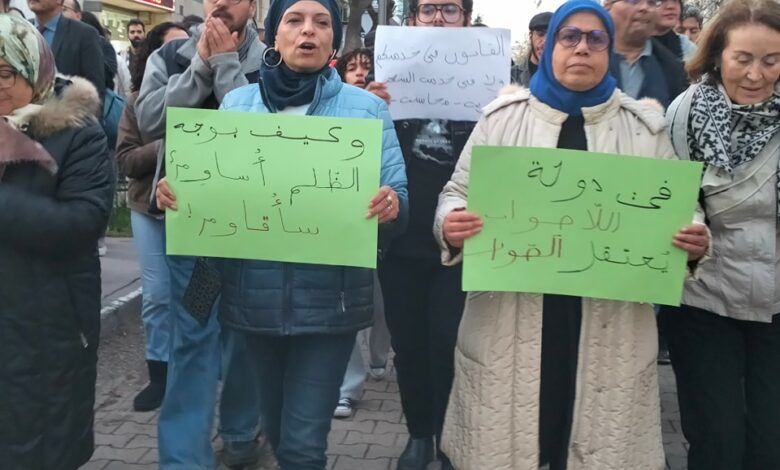 وكيف بوجه
الظّلم أُساوِمُ؟
سأُقاوم!
القانون في خدمتكم
ولا في خدمة الشعب
محاسبة
في دولة
اللّاصواب
يُعتقل الصّوَاب